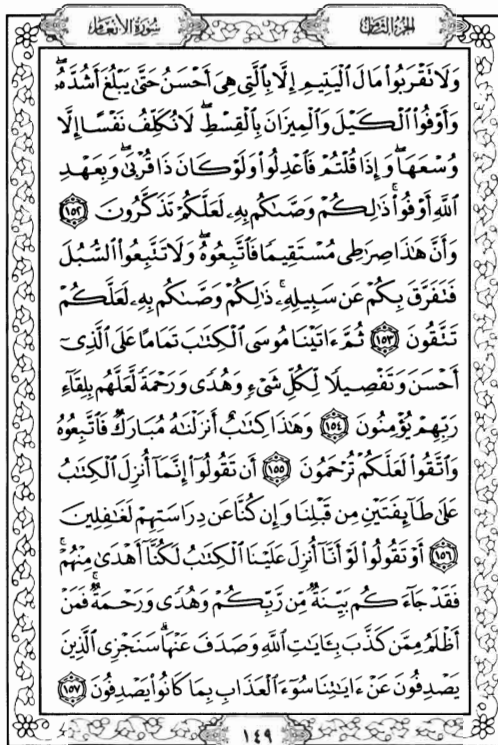 سُورَةُ الأَنْعَامِ
الجُزْءُ الثَّامِنُ
وَلَا تَقْرَبُوا۟ مَالَ ٱلْيَتِيمِ إِلَّا بِٱلَّتِى هِىَ أَحْسَنُ حَتَّىٰ يَبْلُغَ أَشُدَّهُۥۖ
وَأَوْفُوا۟ ٱلْكَيْلَ وَٱلْمِيزَانَ بِٱلْقِسْطِۖ لَا نُكَلِّفُ نَفْسًا إِلَّا
وُسْعَهَاۖ وَإِذَا قُلْتُمْ فَٱعْدِلُوا۟ وَلَوْ كَانَ ذَا قُرْبَىٰۖ وَبِعَهْدِ
ٱللَّهِ أَوْفُوا۟ۚ ذَٰلِكُمْ وَصَّىٰكُم بِهِۦ لَعَلَّكُمْ تَذَكَّرُونَ ١٥٢
وَأَنَّ هَٰذَا صِرَٰطِى مُسْتَقِيمًا فَٱتَّبِعُوهُۖ وَلَا تَتَّبِعُوا۟ ٱلسُّبُلَ
فَتَفَرَّقَ بِكُمْ عَن سَبِيلِهِۦۚ ذَٰلِكُمْ وَصَّىٰكُم بِهِۦ لَعَلَّكُمْ
تَتَّقُونَ ١٥٣ ثُمَّ ءَاتَيْنَا مُوسَى ٱلْكِتَٰبَ تَمَامًا عَلَى ٱلَّذِىٓ
أَحْسَنَ وَتَفْصِيلًا لِّكُلِّ شَىْءٍ وَهُدًى وَرَحْمَةً لَّعَلَّهُم بِلِقَآءِ
رَبِّهِمْ يُؤْمِنُونَ ١٥٤ وَهَٰذَا كِتَٰبٌ أَنزَلْنَٰهُ مُبَارَكٌ فَٱتَّبِعُوهُ
وَٱتَّقُوا۟ لَعَلَّكُمْ تُرْحَمُونَ ١٥٥ أَن تَقُولُوٓا۟ إِنَّمَآ أُنزِلَ ٱلْكِتَٰبُ
عَلَىٰ طَآئِفَتَيْنِ مِن قَبْلِنَا وَإِن كُنَّا عَن دِرَاسَتِهِمْ لَغَٰفِلِينَ
١٥٦ أَوْ تَقُولُوا۟ لَوْ أَنَّآ أُنزِلَ عَلَيْنَا ٱلْكِتَٰبُ لَكُنَّآ أَهْدَىٰ مِنْهُمْۚ
فَقَدْ جَآءَكُم بَيِّنَةٌ مِّن رَّبِّكُمْ وَهُدًى وَرَحْمَةٌۚ فَمَنْ
أَظْلَمُ مِمَّن كَذَّبَ بِـَٔايَٰتِ ٱللَّهِ وَصَدَفَ عَنْهَاۗ سَنَجْزِى ٱلَّذِينَ
يَصْدِفُونَ عَنْ ءَايَٰتِنَا سُوٓءَ ٱلْعَذَابِ بِمَا كَانُوا۟ يَصْدِفُونَ ١٥٧
١٤٩